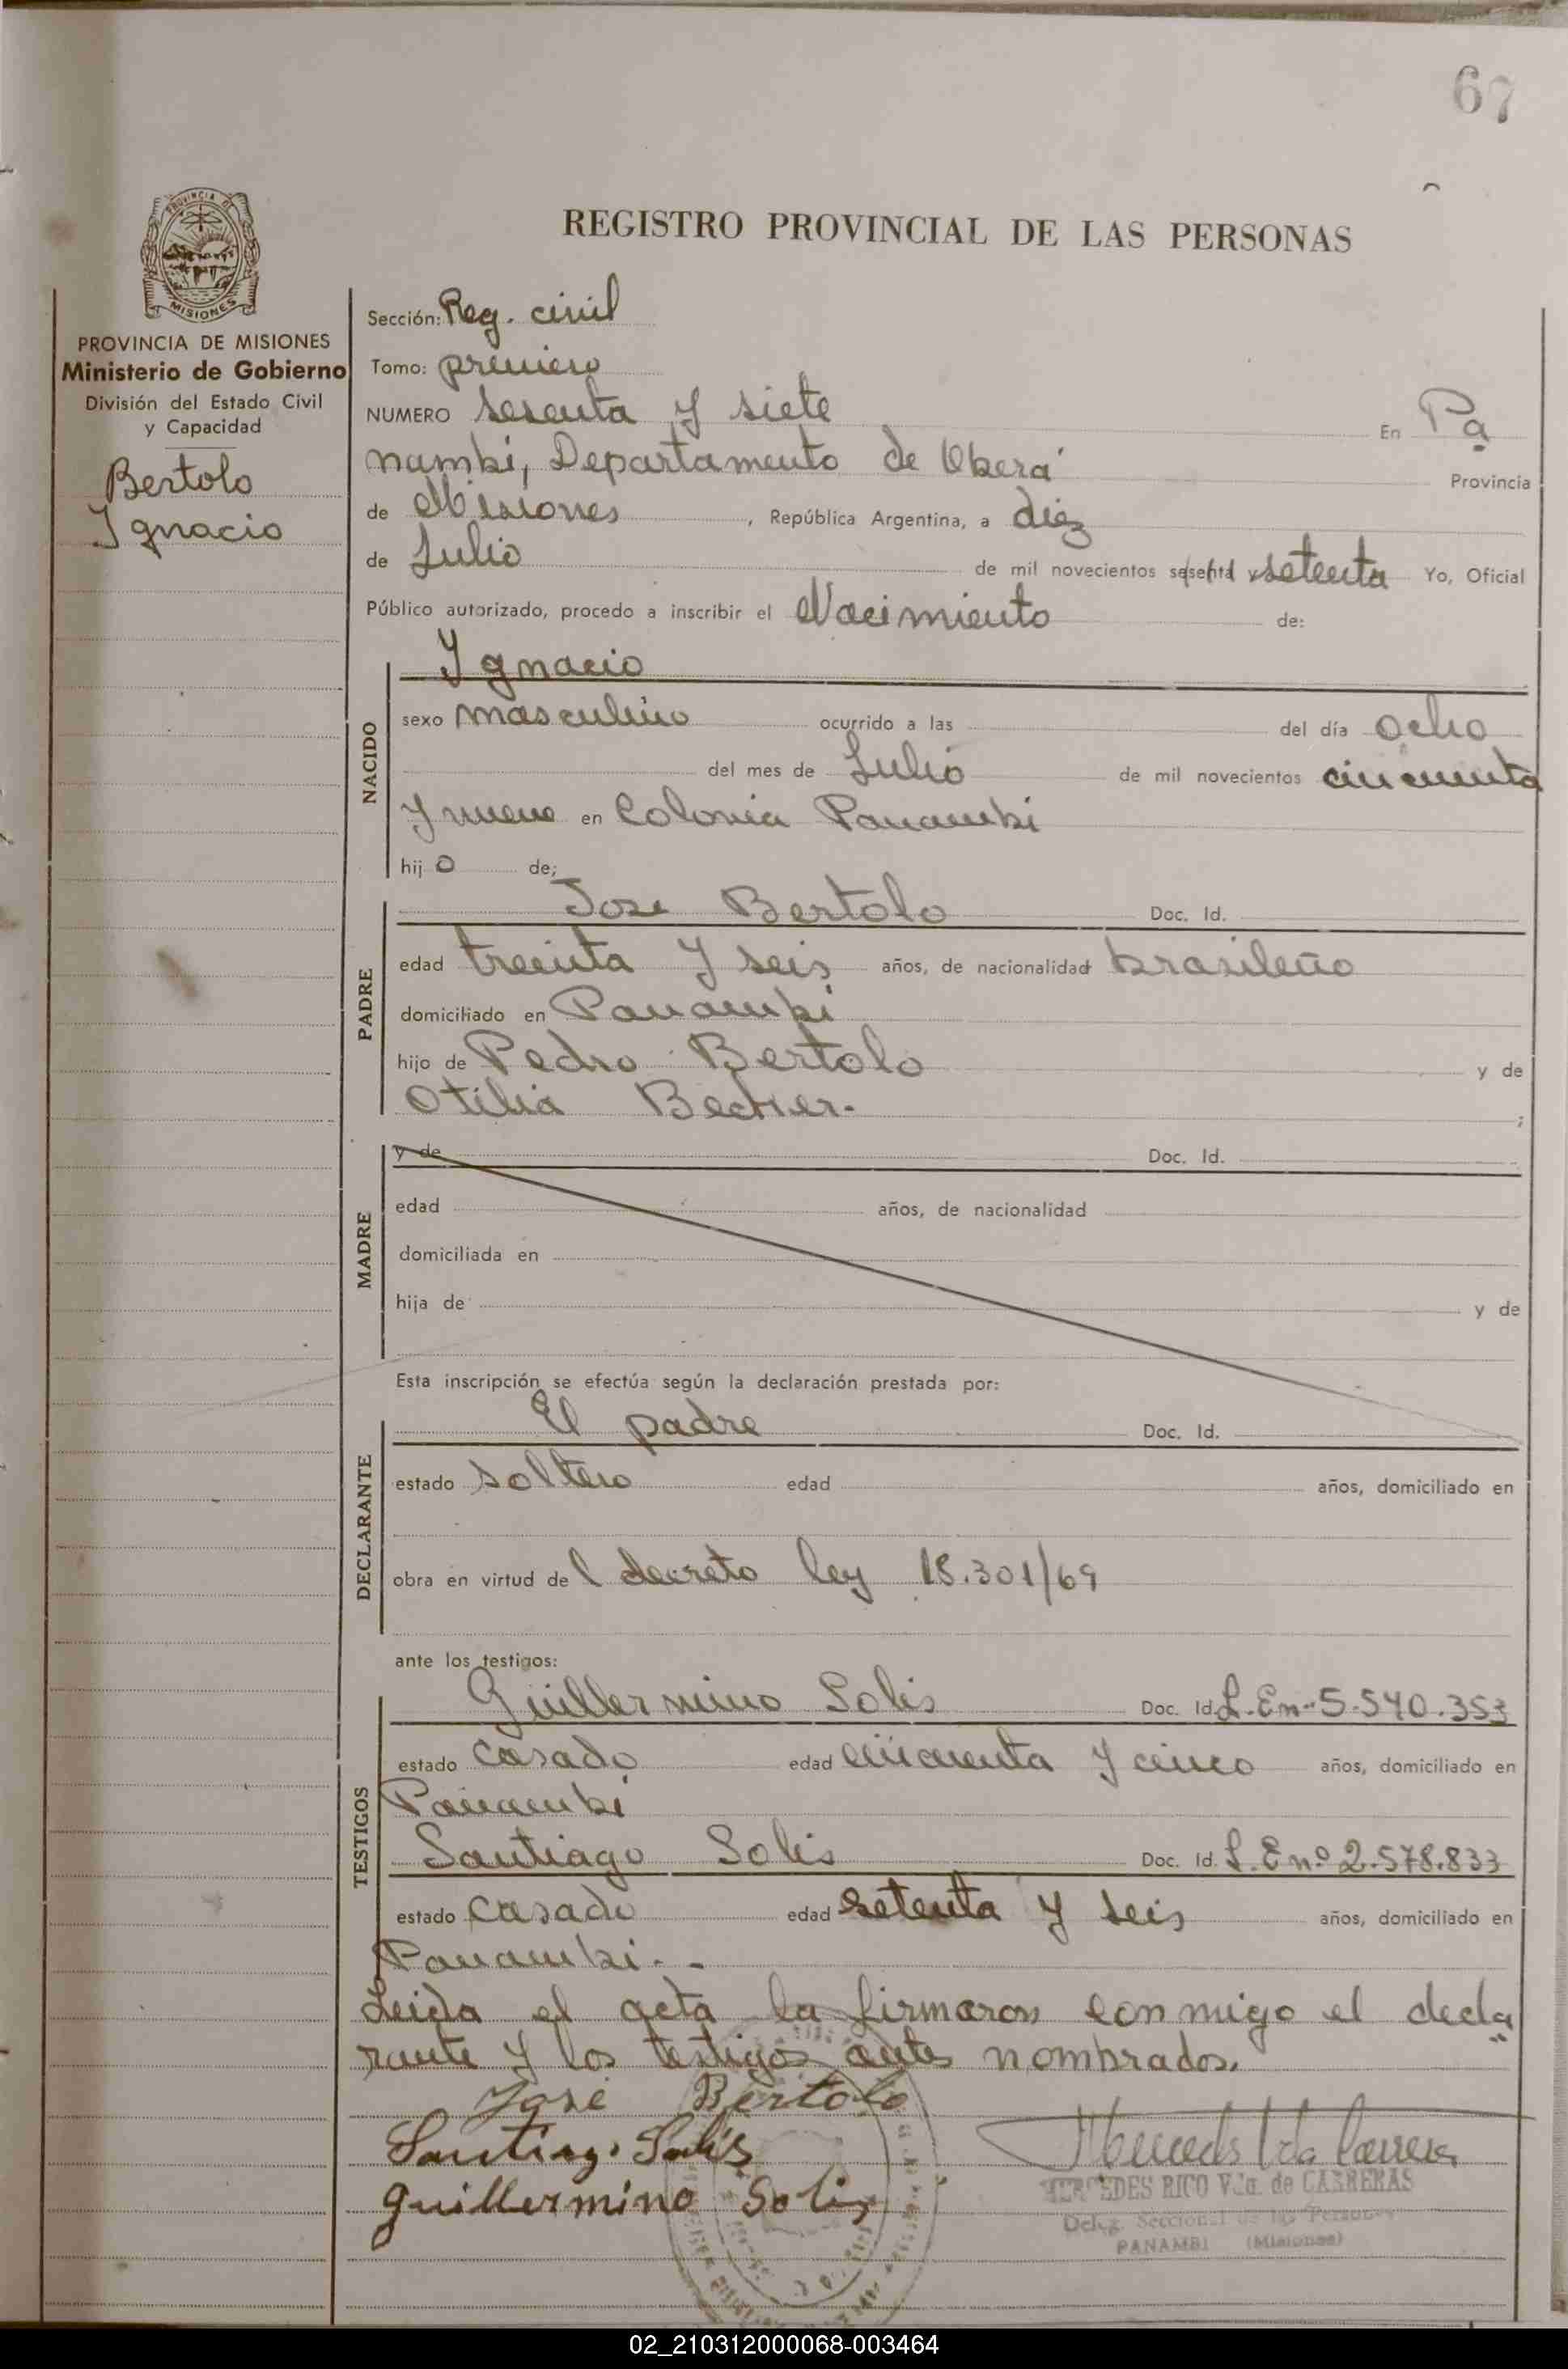 67
REGISTRO PROVINCIAL DE LAS PERSONAS
PROVINCIA DE
MISIONES
PROVINCIA DE MISIONES
Ministerio de Gobierno
División del Estado Civil
y Capacidad
Bertolo
Ygnacio
Sección: Reg. civil
Tomo: primero
NUMERO sesenta y siete En Pa
nambi, Departamento de Oberá Provincia
de Misiones, República Argentina, a diez
de Julio de mil novecientos sesenta y setenta Yo, Oficial
Público autorizado, procedo a inscribir el Nacimiento de:
NACIDO
Ygnacio
sexo masculino ocurrido a las del día ocho
del mes de Julio de mil novecientos cincuenta
y nueve en Colonia Panambi
hijo de;
PADRE
Jose Bertolo Doc. Id.
edad treinta y seis años, de nacionalidad brasileño
domiciliado en Panambi
hijo de Pedro Bertolo y de
Otilia Becker. ;
MADRE
y de Doc. Id.
edad años, de nacionalidad
domiciliada en
hija de y de
Esta inscripción se efectúa según la declaración prestada por:
DECLARANTE
El padre Doc. Id.
estado soltero edad años, domiciliado en
obra en virtud del decreto ley 18.301/69
ante los testigos:
TESTIGOS
Guillermino Solis Doc. Id. L. En. 5.540.353
estado casado edad cincuenta y cinco años, domiciliado en
Panambi
Santiago Solis Doc. Id. L. E nº 2.578.833
estado casado edad setenta y seis años, domiciliado en
Panambi. -
Leida el acta la firmaron conmigo el decla
rante y los testigos antes nombrados.
José Bertolo
Santiago Solís
Guillermino Solis
MERCEDES RICO Vda. de CARRERAS
Deleg. Seccional de las Personas
PANAMBI (Misiones)
02_210312000068-003464